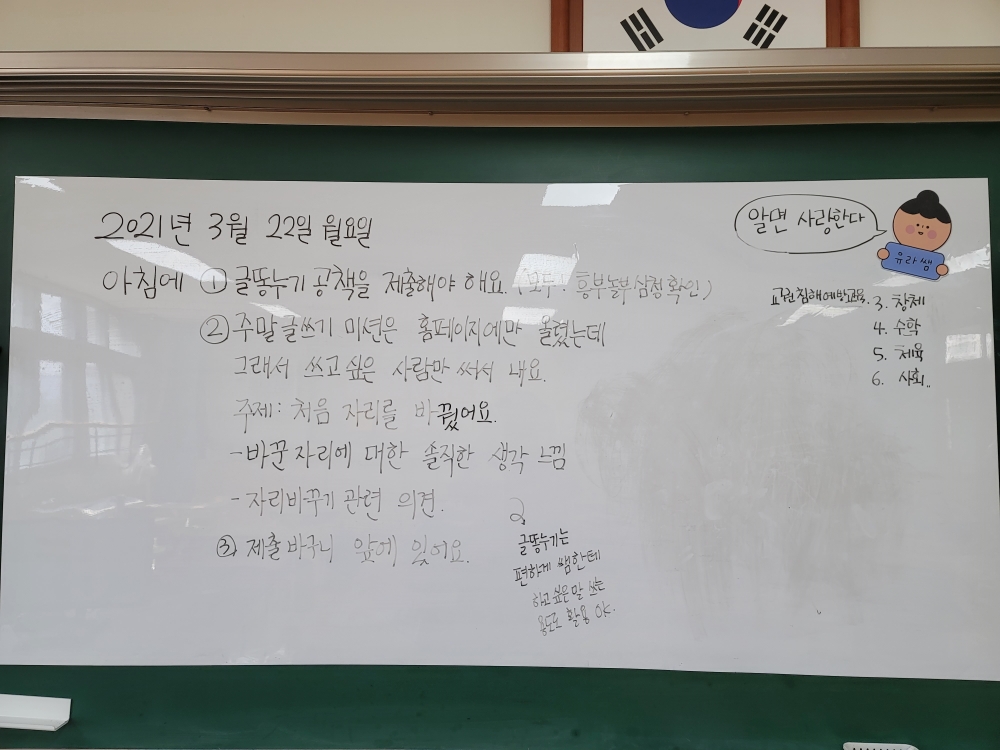 2021년 3월 22일 월요일
알면 사랑한다
유라쌤
아침에 ① 글똥누기 공책을 제출해야 해요. (모두. 흥부놀부 삼청 확인)
② 주말글쓰기 미션은 홈페이지에만 올렸는데
그래서 쓰고 싶은 사람만 써서 내요.
주제: 처음 자리를 바꿨어요.
- 바꾼 자리에 대한 솔직한 생각 느낌
- 자리바꾸기 관련 의견.
③ 제출바구니 앞에 있어요.
글똥누기는
편하게 쌤한테
하고싶은말 쓰는
용도로 활용 OK.
교권침해예방교육. 3. 창체
4. 수학
5. 체육
6. 사회..